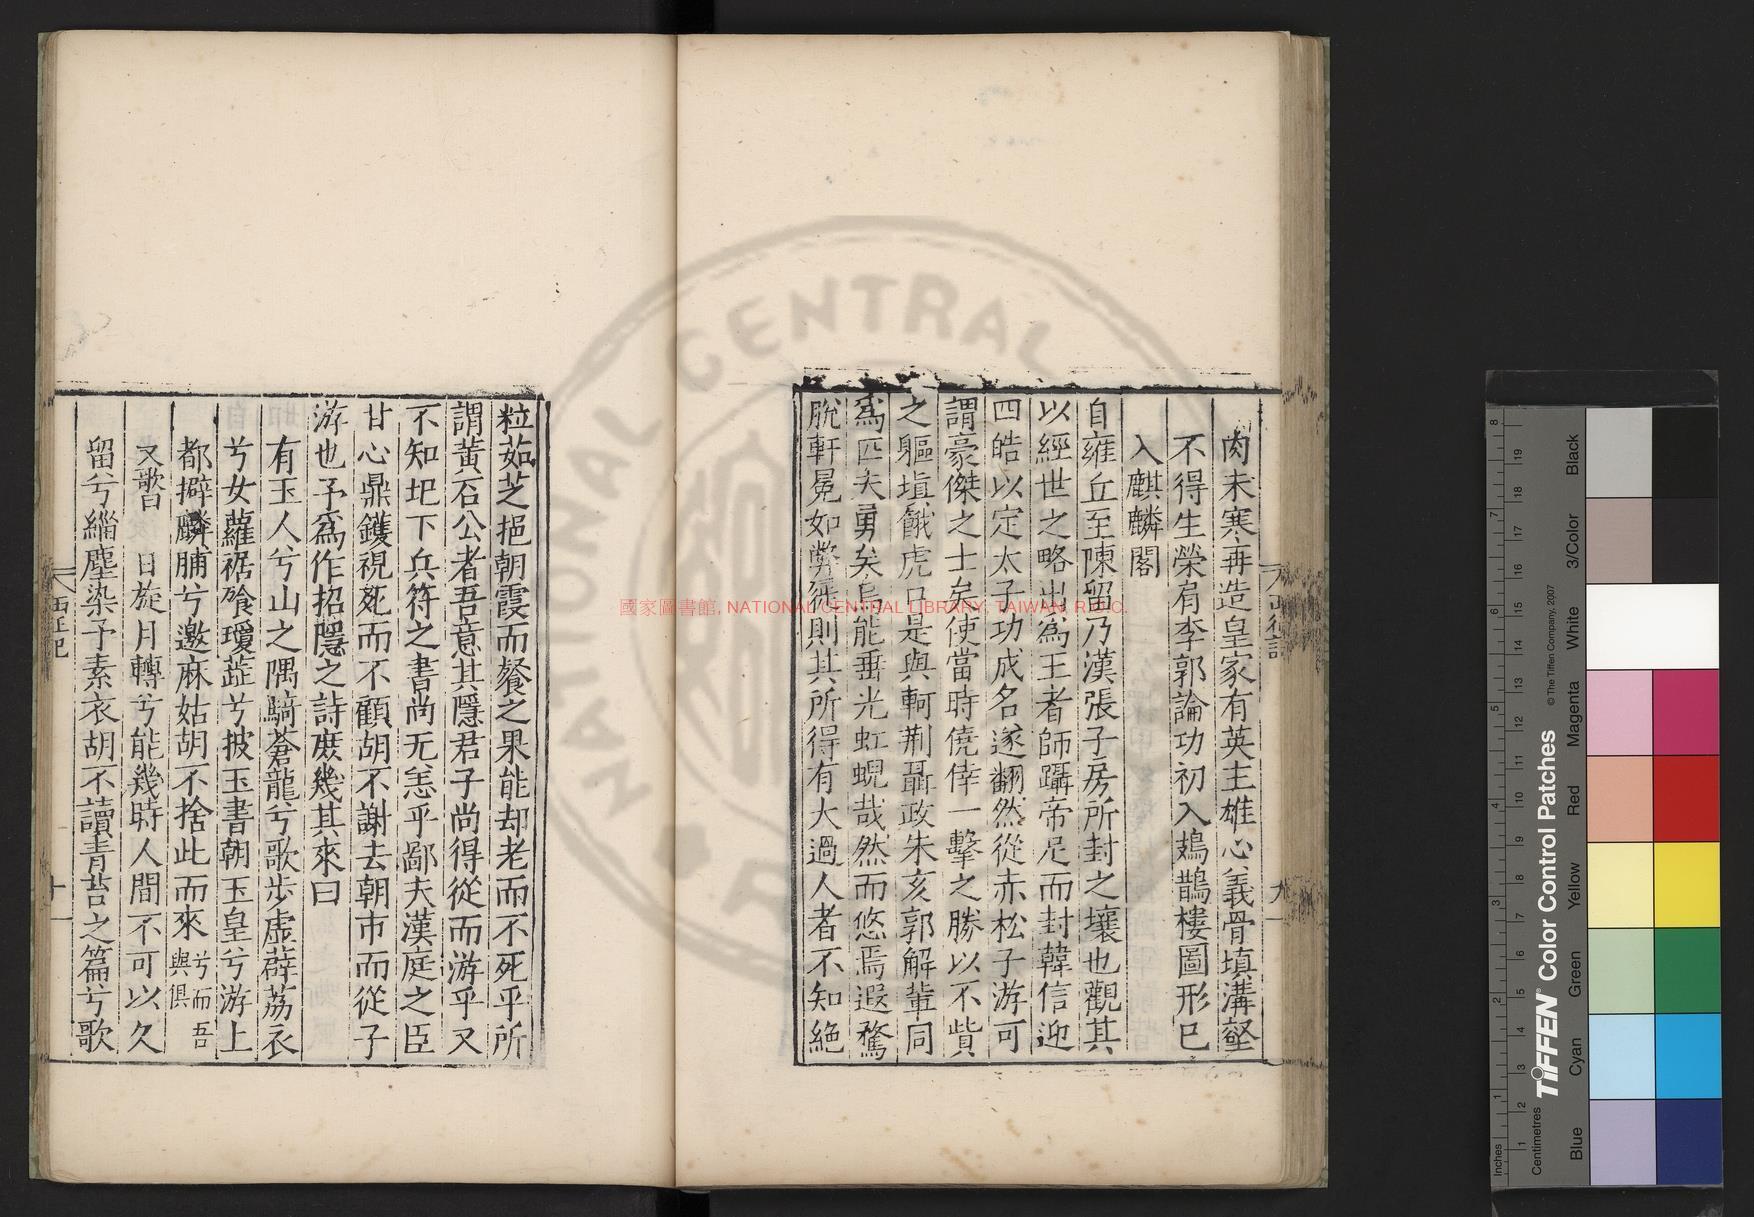 肉未寒再造皇家有英主雄心義骨填溝壑
不得生榮肩李郭論功初入鳷鵲樓圖形已
入麒麟閣
自雍丘至陳留乃漢張子房所封之壤也觀其
以經世之略出為王者師躡帝足而封韓信迎
四皓以定太子功成名遂翻然從赤松子游可
謂豪傑之士矣使當時僥倖一擊之勝以不貲
之軀填餓虎口是與軻荆聶政朱亥郭解輩同
為匹夫勇矣烏能垂光虹蜺哉然而悠焉遐騖
脫軒冕如弊
則其所得有大過人者不知絕
粒茹芝挹朝霞而餐之果能却老而不死乎所
謂黃石公者吾意其隱君子尚得從而游乎又
不知圯下兵符之書尚无恙乎鄙夫漢庭之臣
甘心鼎鑊視死而不顧胡不謝去朝市而從子
游也予為作招隱之詩庶幾其來曰
有玉人兮山之隅騎蒼龍兮歌步虛薜荔衣
兮女蘿裾飡瓊蘂兮披玉書朝玉皇兮游上
都擗麟脯兮邀麻姑胡不捨此而來兮而吾與俱
又歌曰 日旋月轉兮能幾時人間不可以久
留兮緇塵染予素衣胡不讀青苔之篇兮歌
西征記
十一
九
國家圖書館, NATIONAL CENTRAL LIBRARY, TAIWAN, R.O.C.
NATIONAL CENTRAL
TIFFEN® Color Control Patches
© The Tiffen Company, 2007
Inches
Centimetres
Blue
Cyan
Green
Yellow
Red
Magenta
White
3/Color
Black